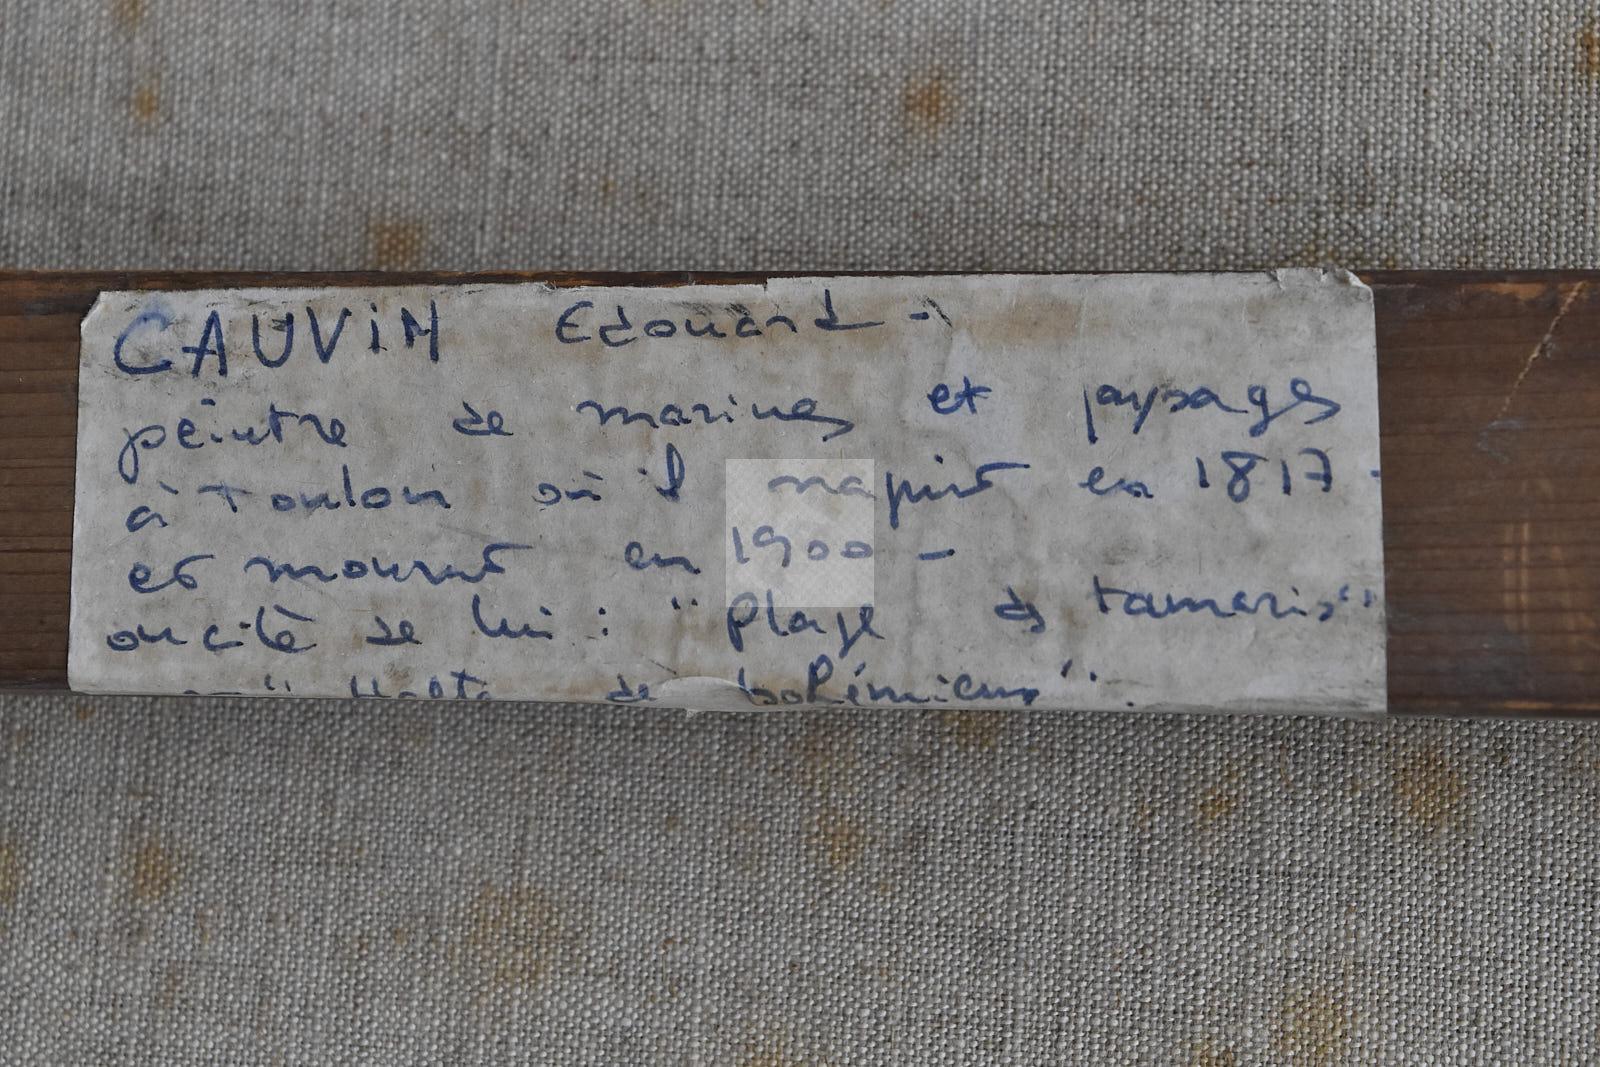 CAUVIN Edouard -
peintre de marines et paysages
à Toulon où il naquit en 1817 -
et mourut en 1900 -
on cite de lui : "Plage des tamaris"
"Halte de bohémiens".